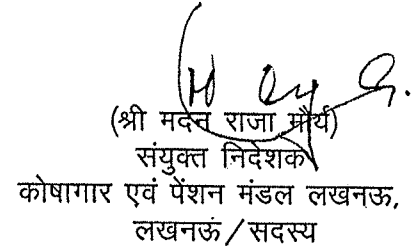 (श्री मदन राजा मौर्य)
संयुक्त निदेशक
कोषागार एवं पेंशन मंडल लखनऊ,
लखनऊं/सदस्य